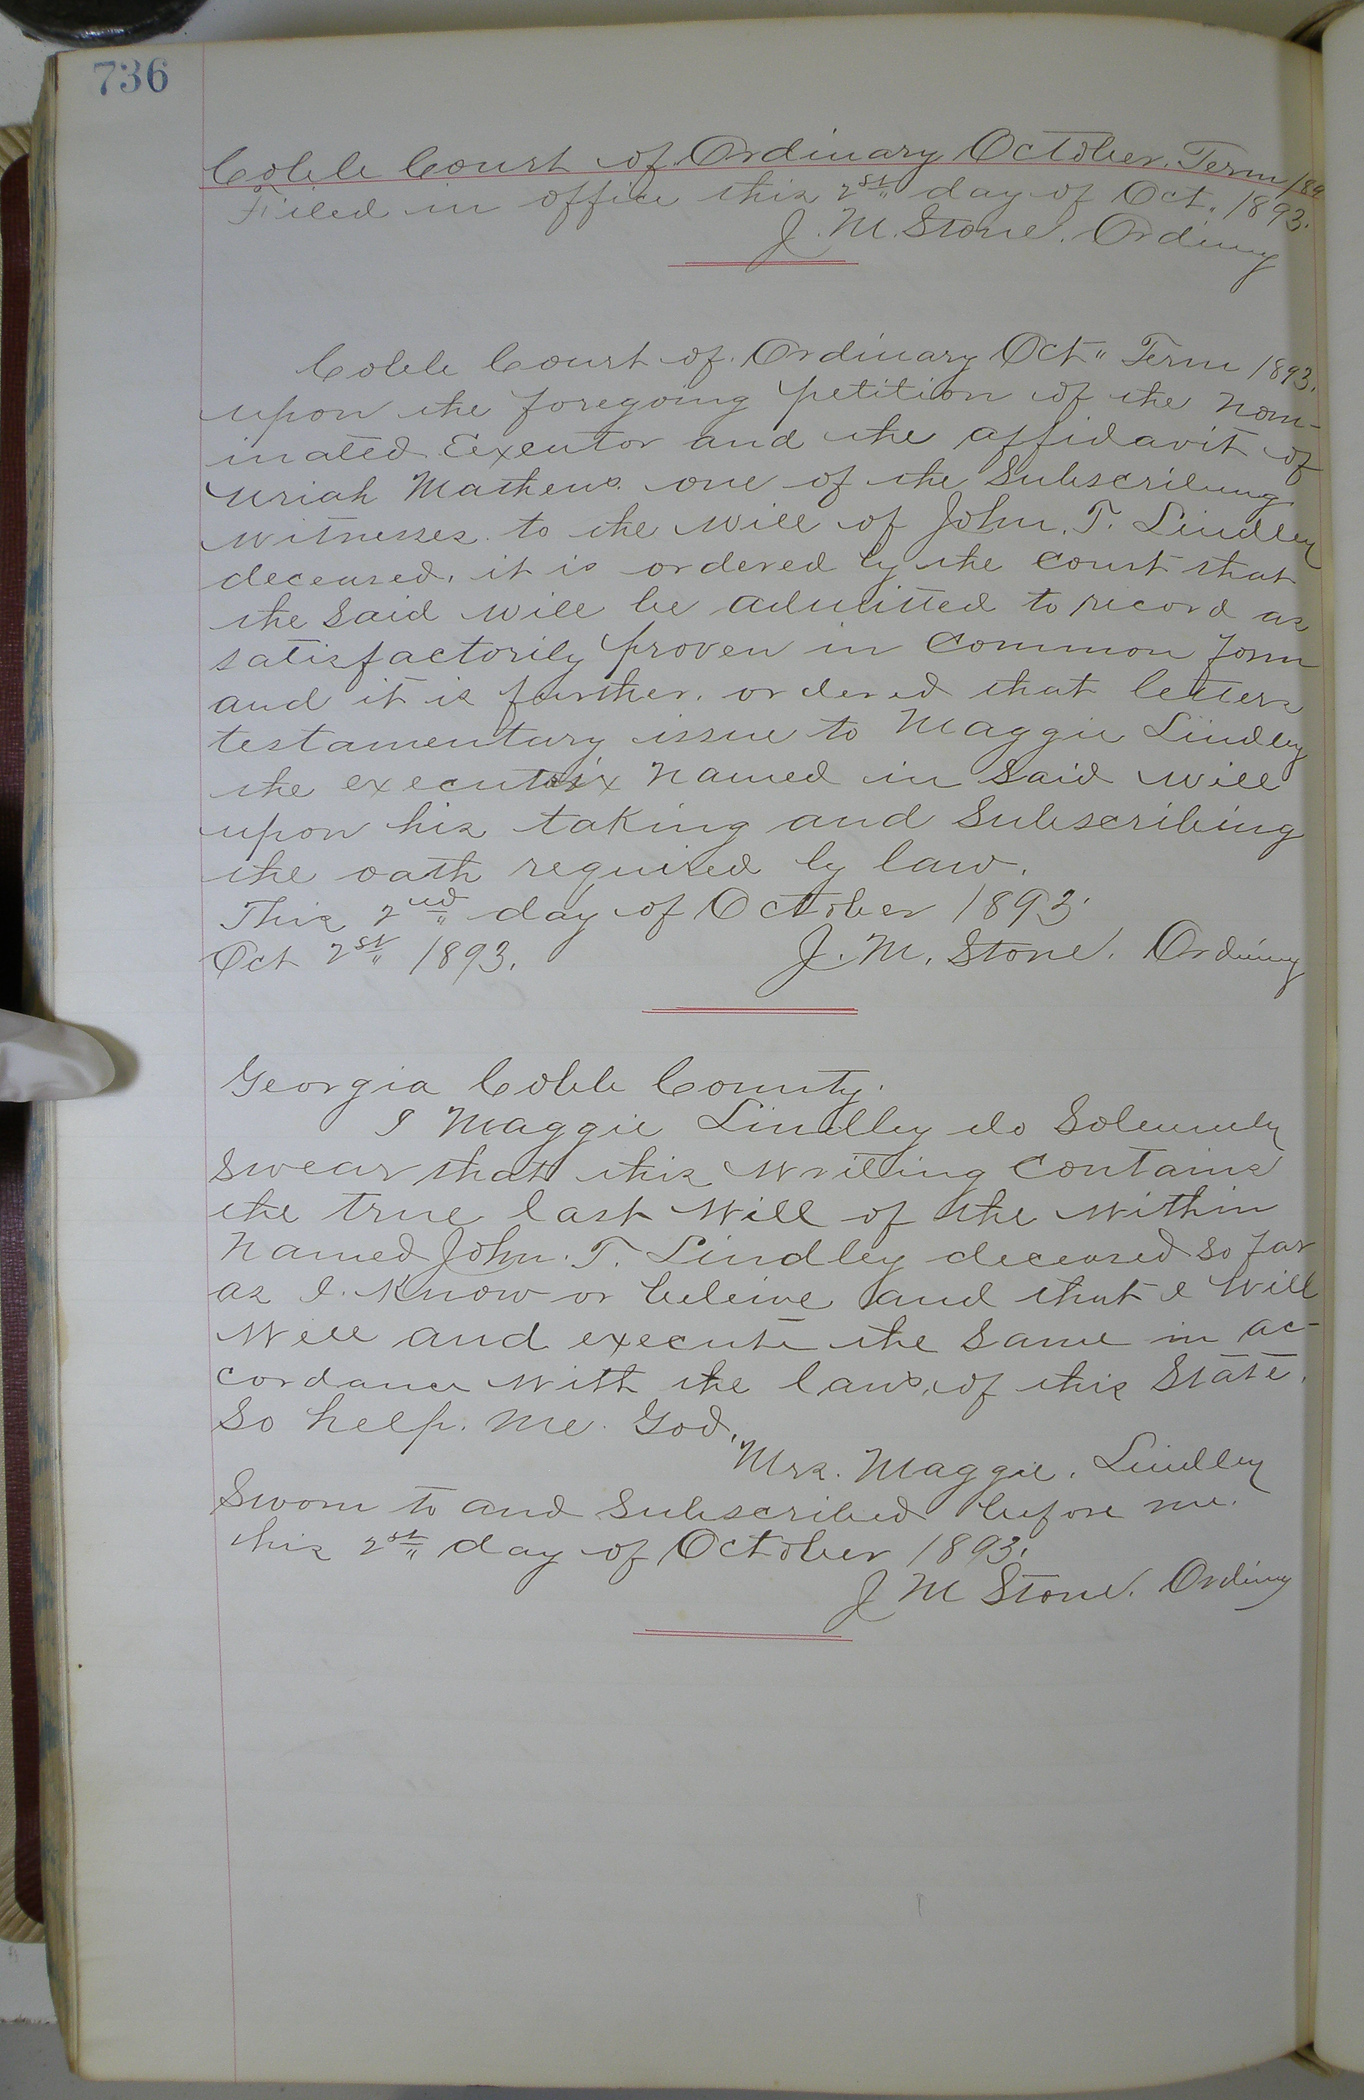 736
Cobb Court of Ordinary October Term 189
Filed in office this 2st day of Oct. 1893.
J. M. Stone. Ordinary
Cobb Court of Ordinary Oct" Term 1893.
upon the foregoing petition of the nom-
inated Executor and the affidavit of
Uriah Mathews one of the Subscribing
witnesses to the will of John. T. Lindley
deceased. it is ordered by the court that
the said will be admitted to record as
satisfactorily proven in Common form
and it is further. ordered that letters
testamentary issue to Maggie Lindley
the executrix named in said will
upon his taking and Subscribing
the oath required by law.
This 2nd day of October 1893.
Oct 2st 1893. J. M. Stone. Ordinary
Georgia Cobb County.
I Maggie Lindley do Solemnly
swear that this writing Contains
the true last Will of the within
Named John. T. Lindley deceased so far
as I. Know or beleive and that I Will
Well and execute the Same in ac-
cordance with the laws, of this State.
So help. me. God.
Mrs. Maggie. Lindley
Sworn to and Subscribed before me.
this 2st day of October 1893.
J M Stone. Ordinary